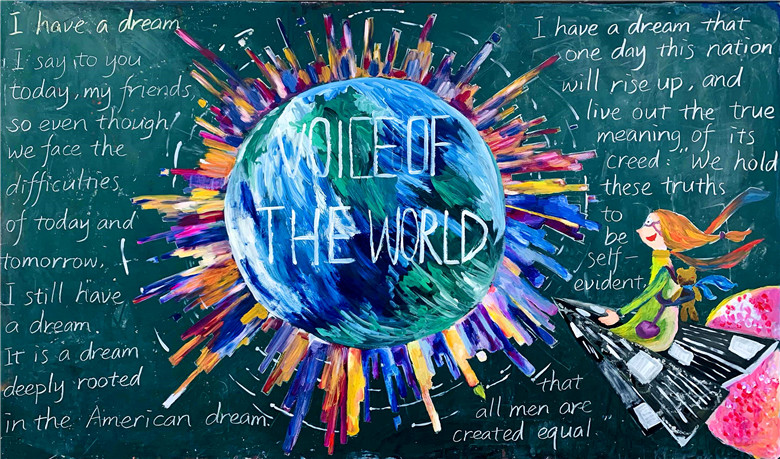 I have a dream
I say to you
today, my friends,
so even though
we face the
difficulties
of today and
tomorrow,
I still have
a dream.
It is a dream
deeply rooted
in the American dream.
VOICE OF
THE WORLD
I have a dream that
one day this nation
will rise up, and
live out the true
meaning of its
creed: "We hold
these truths
to
be
self-
evident,
that
all men are
created equal."